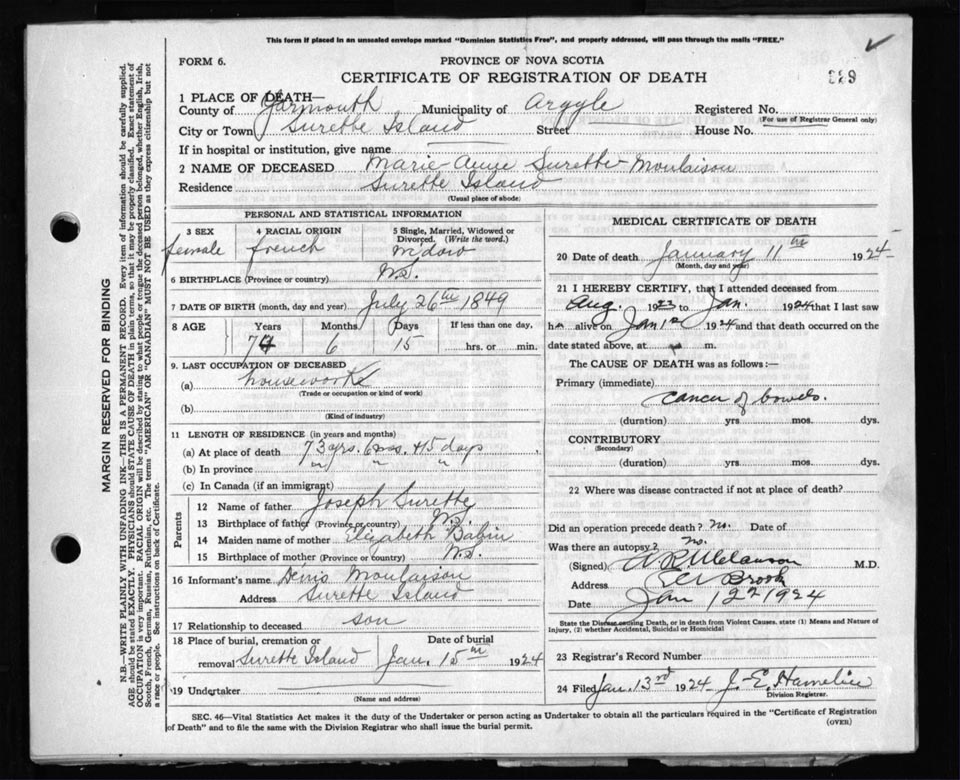 This form if placed in an unsealed envelope marked "Dominion Statistics Free", and properly addressed, will pass through the mails "FREE."
FORM 6.
PROVINCE OF NOVA SCOTIA
CERTIFICATE OF REGISTRATION OF DEATH
1 PLACE OF DEATH—
County of Yarmouth Municipality of Argyle Registered No.
(For use of Registrar General only)
City or Town Surette Island Street House No.
If in hospital or institution, give name
2 NAME OF DECEASED Marie-Anne Surette Moulaison
Residence Surette Island
(Usual place of abode)
PERSONAL AND STATISTICAL INFORMATION
3 SEX 4 RACIAL ORIGIN 5 Single, Married, Widowed or Divorced. (Write the word.)
female french widow
6 BIRTHPLACE (Province or country) N.S.
7 DATE OF BIRTH (month, day and year) July 26th 1849
8 AGE Years Months Days If less than one day.
74 6 15 hrs. or min.
9. LAST OCCUPATION OF DECEASED
(a) housework
(Trade or occupation or kind of work)
(b)
(Kind of industry)
11 LENGTH OF RESIDENCE (in years and months)
(a) At place of death 73 yrs. 6 mos. +15 days
(b) In province " " "
(c) In Canada (if an immigrant)
Parents
12 Name of father Joseph Surette
13 Birthplace of father (Province or country) N.S.
14 Maiden name of mother Elizabeth Babin
15 Birthplace of mother (Province or country) N.S.
16 Informant's name Denis Moulaison
Address Surette Island
17 Relationship to deceased son
18 Place of burial, cremation or removal Surette Island Date of burial Jan. 15th 1924
19 Undertaker
(Name and address)
MEDICAL CERTIFICATE OF DEATH
20 Date of death January 11th 1924
(Month, day and year)
21 I HEREBY CERTIFY, that I attended deceased from
Aug. 1923 to Jan. 1924 that I last saw
h alive on Jan 1924 and that death occurred on the
date stated above, at m.
The CAUSE OF DEATH was as follows:—
Primary (immediate)
cancer of bowels.
(duration) yrs mos. dys.
CONTRIBUTORY
(Secondary)
(duration) yrs mos. dys.
22 Where was disease contracted if not at place of death?
Did an operation precede death? no. Date of
Was there an autopsy? no.
(Signed) M.D.
Address Brook
Date Jan 12 1924
State the Disease causing Death, or in death from Violent Causes. state (1) Means and Nature of
Injury, (2) whether Accidental, Suicidal or Homicidal
23 Registrar's Record Number
24 Filed Jan. 13rd 1924 J. E. Hamelin
Division Registrar.
SEC. 46—Vital Statistics Act makes it the duty of the Undertaker or person acting as Undertaker to obtain all the particulars required in the "Certificate of Registration
of Death" and to file the same with the Division Registrar who shall issue the burial permit.
(OVER)
MARGIN RESERVED FOR BINDING
N.B.—WRITE PLAINLY WITH UNFADING INK—THIS IS A PERMANENT RECORD. Every item of information should be carefully supplied.
AGE should be stated EXACTLY. PHYSICIANS should STATE CAUSE OF DEATH in plain terms, so that it may be properly classified. Exact statement of
OCCUPATION is very important. RACIAL ORIGIN will be described by stating to what people or tongue the deceased person belonged, whether English, Irish,
Scotch, French, German, Russian, Ruthenian, etc. The terms "AMERICAN" OR "CANADIAN" MUST NOT BE USED as they express citizenship but not
a race or people. See instructions on back of Certificate.